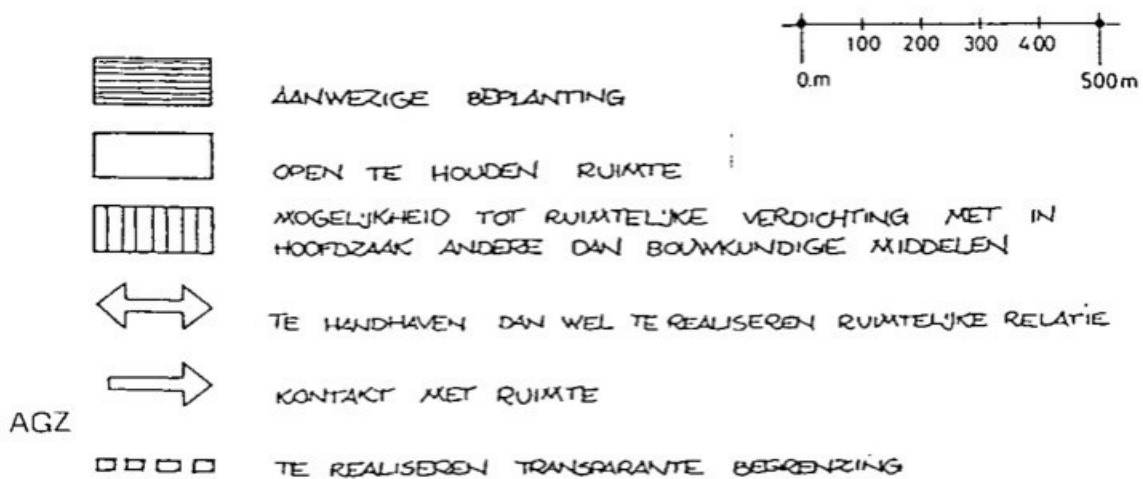 100 200 300 400
0.m 500m
AANWEZIGE BEPLANTING
OPEN TE HOUDEN RUIMTE
MOGELIJKHEID TOT RUIMTELIJKE VERDICHTING MET IN
HOOFDZAAK ANDERE DAN BOUWKUNDIGE MIDDELEN
TE HANDHAVEN DAN WEL TE REALISEREN RUIMTELIJKE RELATIE
KONTAKT MET RUIMTE
AGZ
TE REALISEREN TRANSPARANTE BEGRENZING